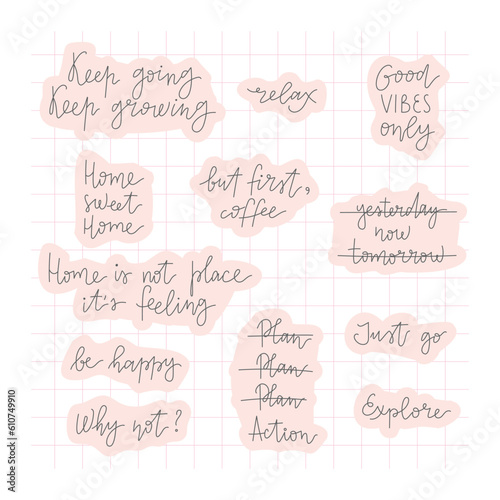 Keep going
Keep growing
relax
Good
VIBES
only
Home
sweet
Home
but first,
coffee
yesterday
now
tomorrow
Home is not place
it's feeling
Plan
Plan
Plan
Action
Just go
be happy
Explore
Why not?
Adobe Stock | #610749910